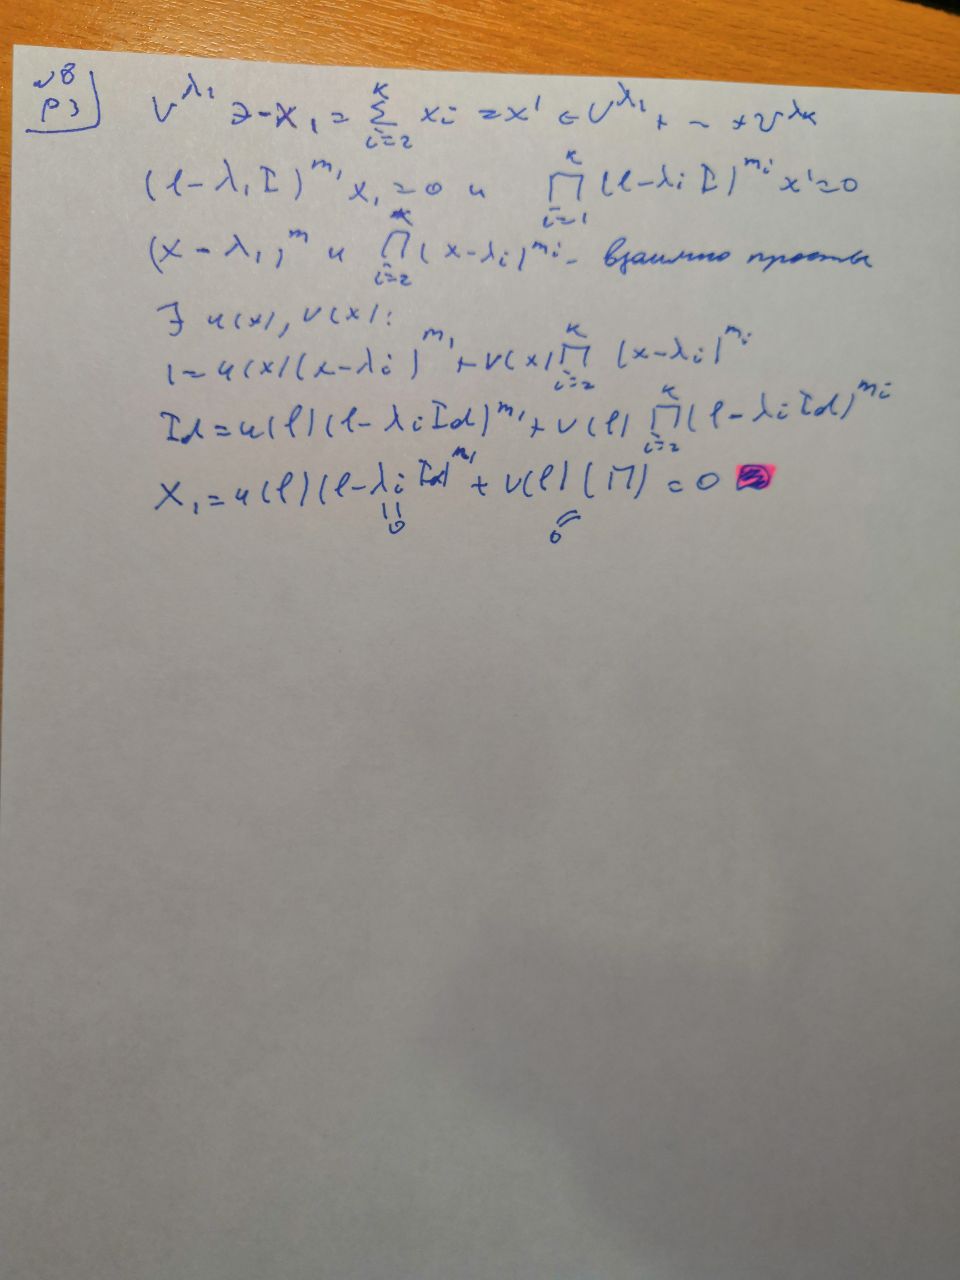 №8
P3
V^{λ_1} ∋ -x_1 = \sum_{i=2}^{k} x_i = x' ∈ V^{λ_1} + ... + V^{λ_k}
(l-λ_1 I)^{m_1} x_1 = 0 и \prod_{i=1}^{k} (l-λ_i I)^{m_i} x' = 0
(x-λ_1)^m и \prod_{i=2}^{k} (x-λ_i)^{m_i} - взаимно просты
∃ u(x), v(x):
1 = u(x)(x-λ_i)^{m_1} + v(x) \prod_{i=2}^{k} (x-λ_i)^{m_i}
Id = u(l)(l-λ_i Id)^{m_1} + v(l) \prod_{i=2}^{k} (l-λ_i Id)^{m_i}
x_1 = u(l)(l-λ_i Id)^{m_1} + v(l)(П) = 0
= 0 = 0